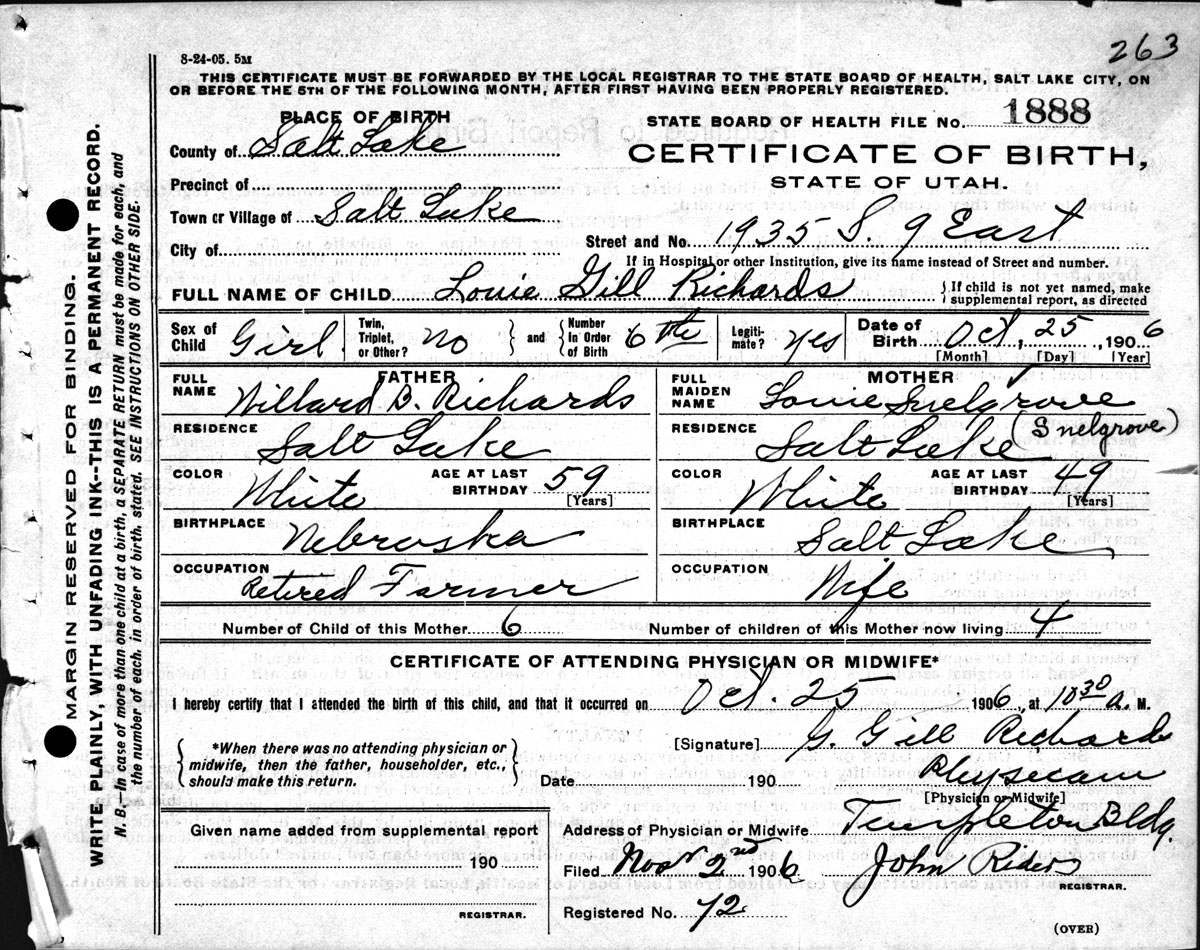 263
8-24-05. 5M
THIS CERTIFICATE MUST BE FORWARDED BY THE LOCAL REGISTRAR TO THE STATE BOARD OF HEALTH, SALT LAKE CITY, ON
OR BEFORE THE 5TH OF THE FOLLOWING MONTH, AFTER FIRST HAVING BEEN PROPERLY REGISTERED.
PLACE OF BIRTH
STATE BOARD OF HEALTH FILE No. 1888
County of Salt Lake
CERTIFICATE OF BIRTH,
STATE OF UTAH.
Precinct of
Town or Village of Salt Lake
City of
Street and No. 1935 S. 9 East
If in Hospital or other Institution, give its name instead of Street and number.
FULL NAME OF CHILD Louie Gill Richards
{If child is not yet named, make
supplemental report, as directed
Sex of Child Girl
Twin, Triplet, or Other? No
and
Number In Order of Birth 6th
Legitimate? Yes
Date of Birth Oct, 25, 1906
[Month] [Day] [Year]
FATHER
FULL NAME Willard B. Richards
RESIDENCE Salt Lake
COLOR White
AGE AT LAST BIRTHDAY 59
[Years]
BIRTHPLACE Nebraska
OCCUPATION Retired Farmer
MOTHER
FULL MAIDEN NAME Louie Snelgrove
(Snelgrove)
RESIDENCE Salt Lake
COLOR White
AGE AT LAST BIRTHDAY 49
[Years]
BIRTHPLACE Salt Lake
OCCUPATION Wife
Number of Child of this Mother 6
Number of children of this Mother now living 4
CERTIFICATE OF ATTENDING PHYSICIAN OR MIDWIFE*
I hereby certify that I attended the birth of this child, and that it occurred on Oct. 25 1906, at 10 30 a. M.
{*When there was no attending physician or
midwife, then the father, householder, etc.,
should make this return.}
[Signature] G. Gill Richards
Date 190
Physician
[Physician or Midwife]
Given name added from supplemental report
190
REGISTRAR.
Address of Physician or Midwife Templeton Bldg.
Filed Nov 2nd 1906
John Riders
REGISTRAR.
Registered No. 72
(OVER)
MARGIN RESERVED FOR BINDING.
WRITE PLAINLY, WITH UNFADING INK--THIS IS A PERMANENT RECORD.
N. B.—In case of more than one child at birth, a SEPARATE RETURN must be made for each, and
the number of each, in order of birth, stated. SEE INSTRUCTIONS ON OTHER SIDE.